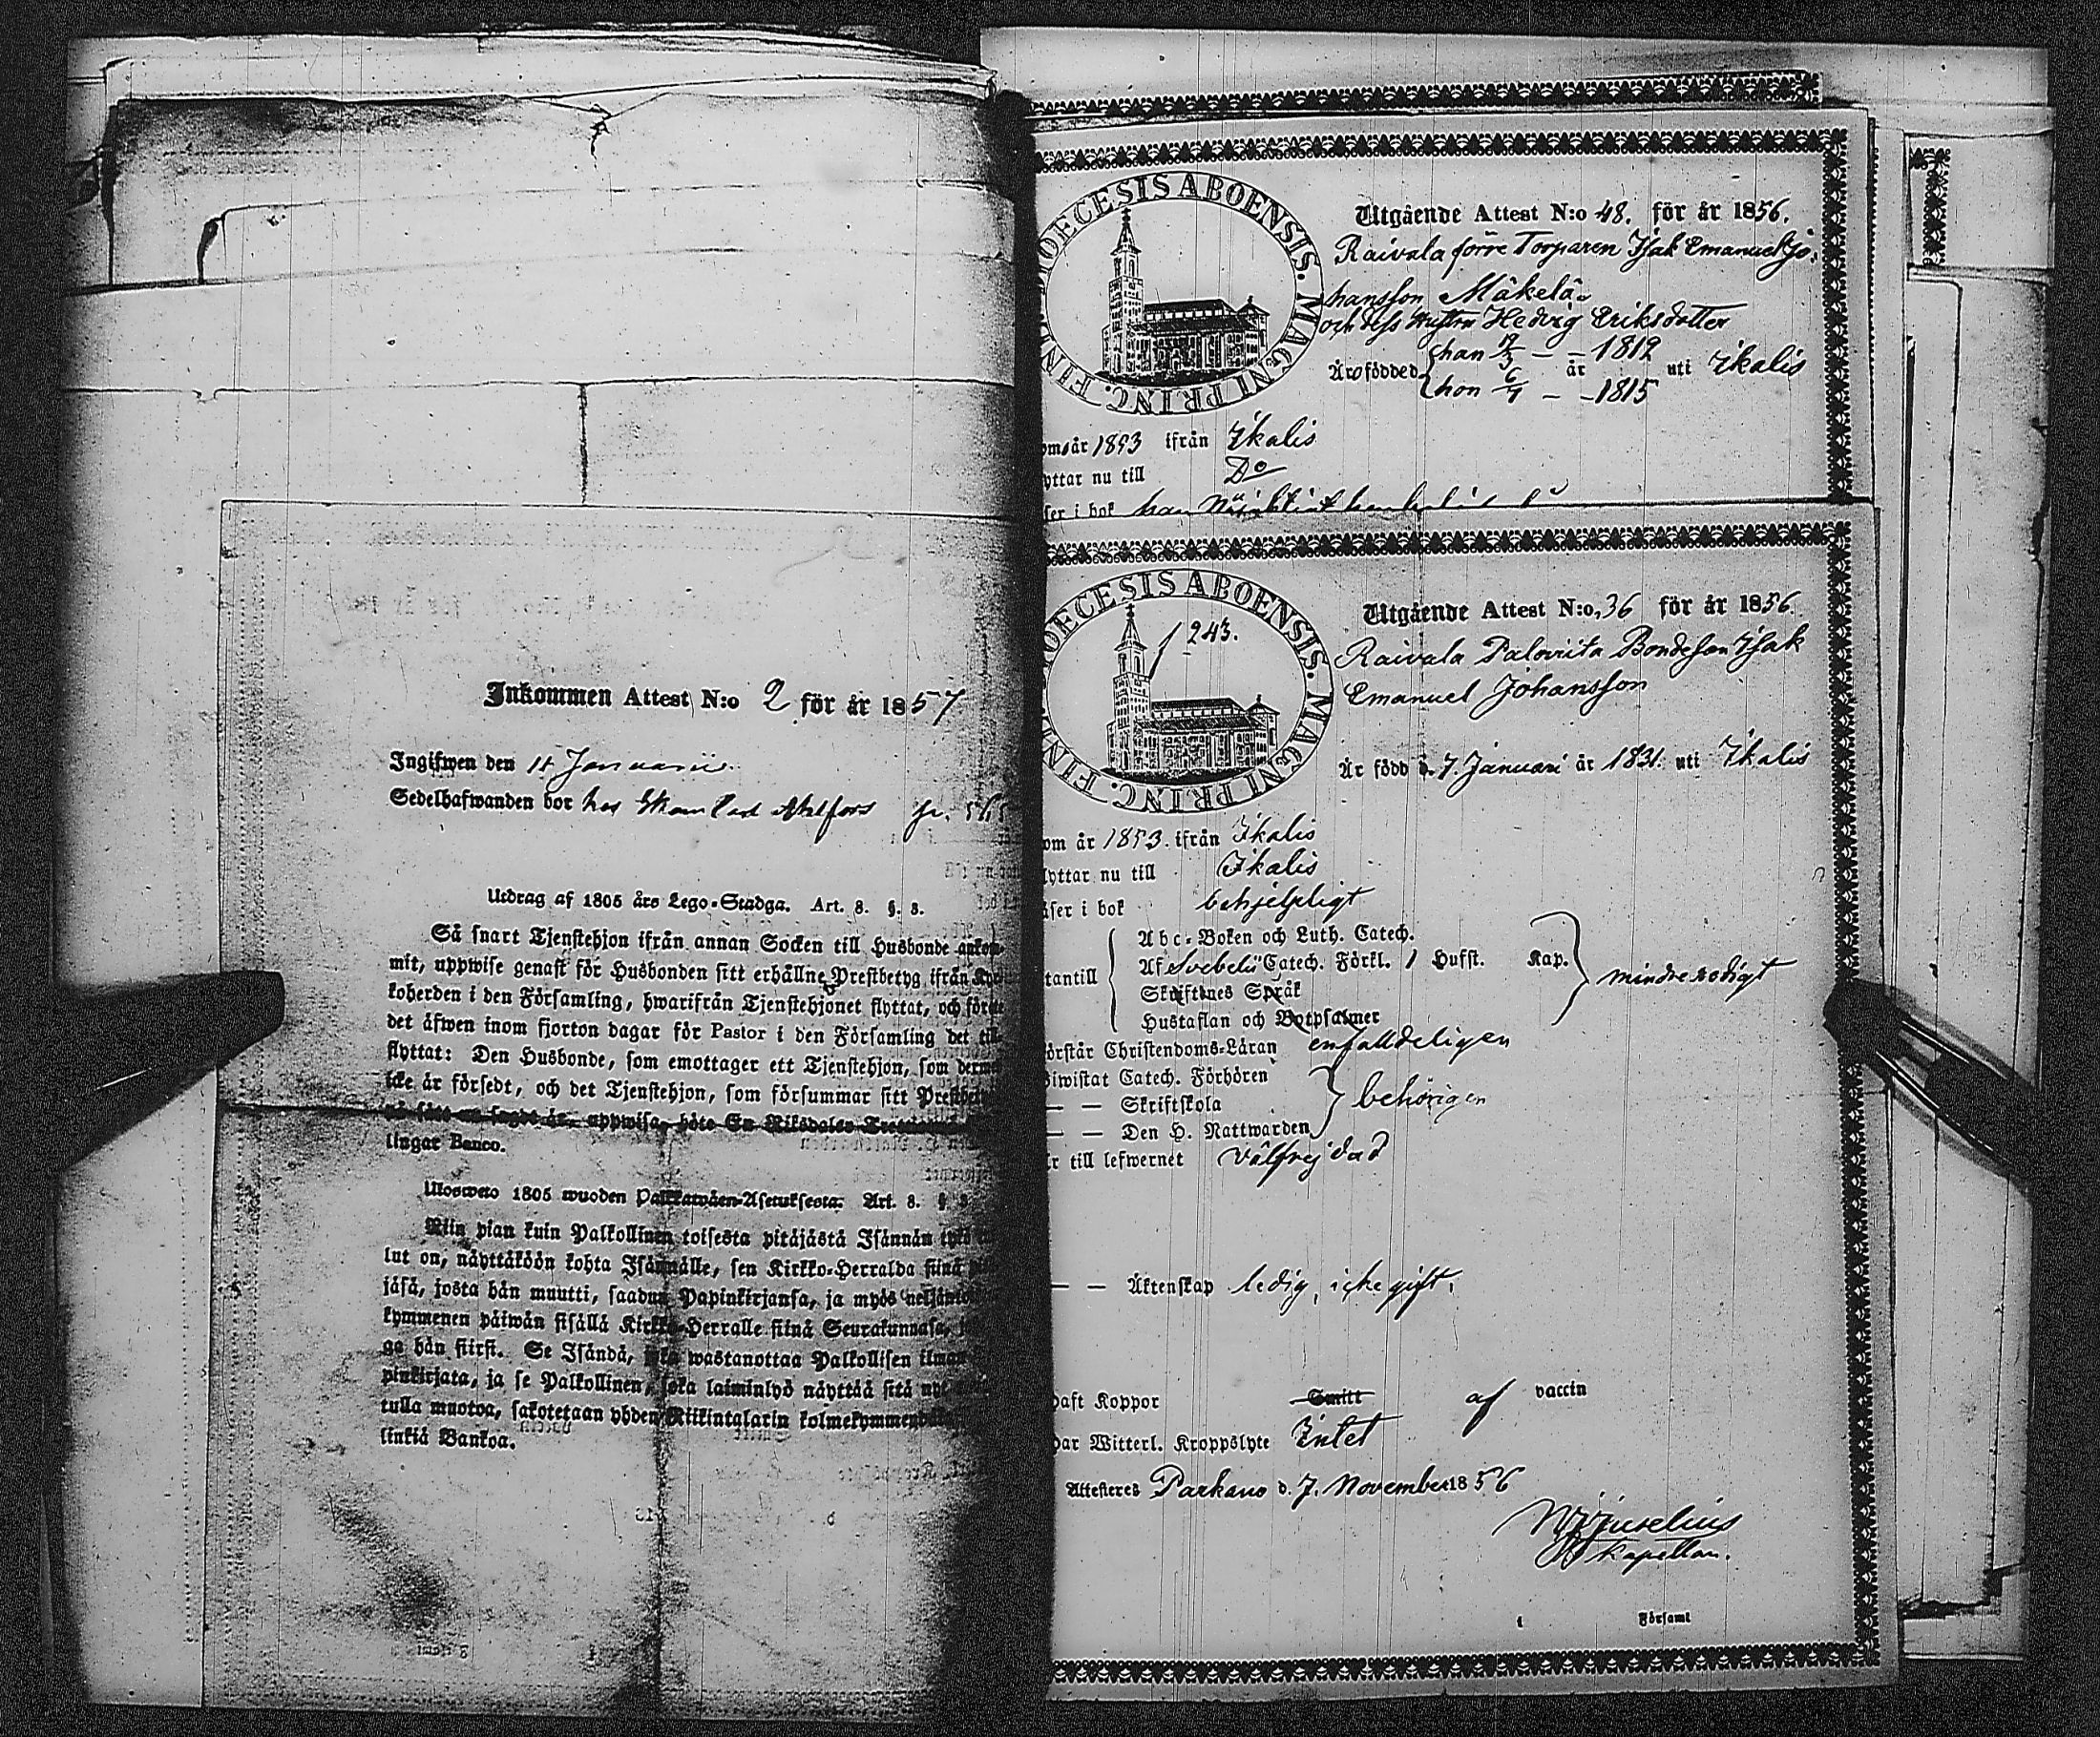 Inkommen Attest N:o 2 för år 1857
Ingifwen den 14 Januarii.
Sedelhafwanden bor hos
Utdrag af 1805 års Lego-Stadga. Art. 8. §. 3.
Så snart Tjenstehjon ifrån annan Socken till Husbonde ankom-
mit, uppwise genast för Husbonden sitt erhållne Prestbetyg ifrån
koherden i den Församling, hwarifrån Tjenstehjonet flyttat, och
det äfwen inom fjorton dagar för Pastor i den Församling det till-
flyttat: Den Husbonde, som emottager ett Tjenstehjon, som
icke är försedt, och det Tjenstehjon, som försummar sitt
på sätt som sagdt är, uppwisa, böte En Riksdaler
lingar Banco.
Ulosweto 1805 wuoden Palkkawäen-Asetuksesta. Art. 8. §
Niin pian kuin Palkollinen toisesta pitäjästä Isännän
lut on, näyttäköön kohta Isännälle, sen Kirkko-Herralda siinä
jäsä, josta hän muutti, saadun Papinkirjansa, ja myös
kymmenen päiwän sisällä Kirkko-Herralle siinä Seurakunnasa,
ga hän siirsi. Se Isändä, joka wastanottaa Palkollisen ilman
pinkirjata, ja se Palkollinen, joka laiminlyö näyttää sitä
tulla muotoa, sakotetaan yhden Riikintalarin
linkiä Bankoa.
DIOECESIS ABOENSIS. MAGNI PRINC. FINL.
Utgående Attest N:o 48. för år 1856.
Raivala förre Torparen Isak Emanuel Jo-
hansson Mäkelä
och dess Hustru Hedvig Eriksdotter
Äro födde d. han – – 1812
år uti Ikalis
hon – – 1815
om år 1853 ifrån Ikalis
yttar nu till Do
ser i bok han
DIOECESIS ABOENSIS. MAGNI PRINC. FINL.
243.
Utgående Attest N:o 36 för år 1856
Raivala Palovita Bondeson Isak
Emanuel Johansson
Är född d. 7. Januari år 1831. uti Ikalis
om år 1853. ifrån Ikalis
lyttar nu till Ikalis
äser i bok behjelpligt
Abc-Boken och Luth. Catech.
Af Svebelii Catech. Förkl. 1 Hufst. Kap.
tantill mindre redigt
Skriftenes Språk
Hustaflan och Botpsalmer
örstår Christendoms-Läran enfalldeligen
iwistat Catech. Förhören
— — Skriftskola behörigen
— — Den H. Nattwarden
r till lefwernet välfrejdad
— — Äktenskap ledig, icke gift.
haft Koppor Smitt af vaccin
har Witterl. Kroppslyte Intet
Attesteres Parkano d. 7. November 1856
Kapellan.
i Församl